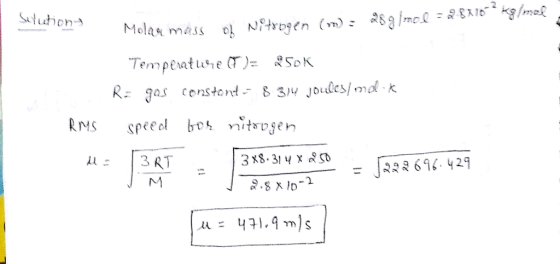 Solution→ Molar mass of Nitrogen (m) = 28g/mol = 2.8×10⁻² kg/mol
Temperature (T) = 250K
R = gas constant = 8.314 joules/mol·K
RMS speed for nitrogen
u = √(3RT/M) = √(3×8.314×250/2.8×10⁻²) = √222696.429
u = 471.9 m/s